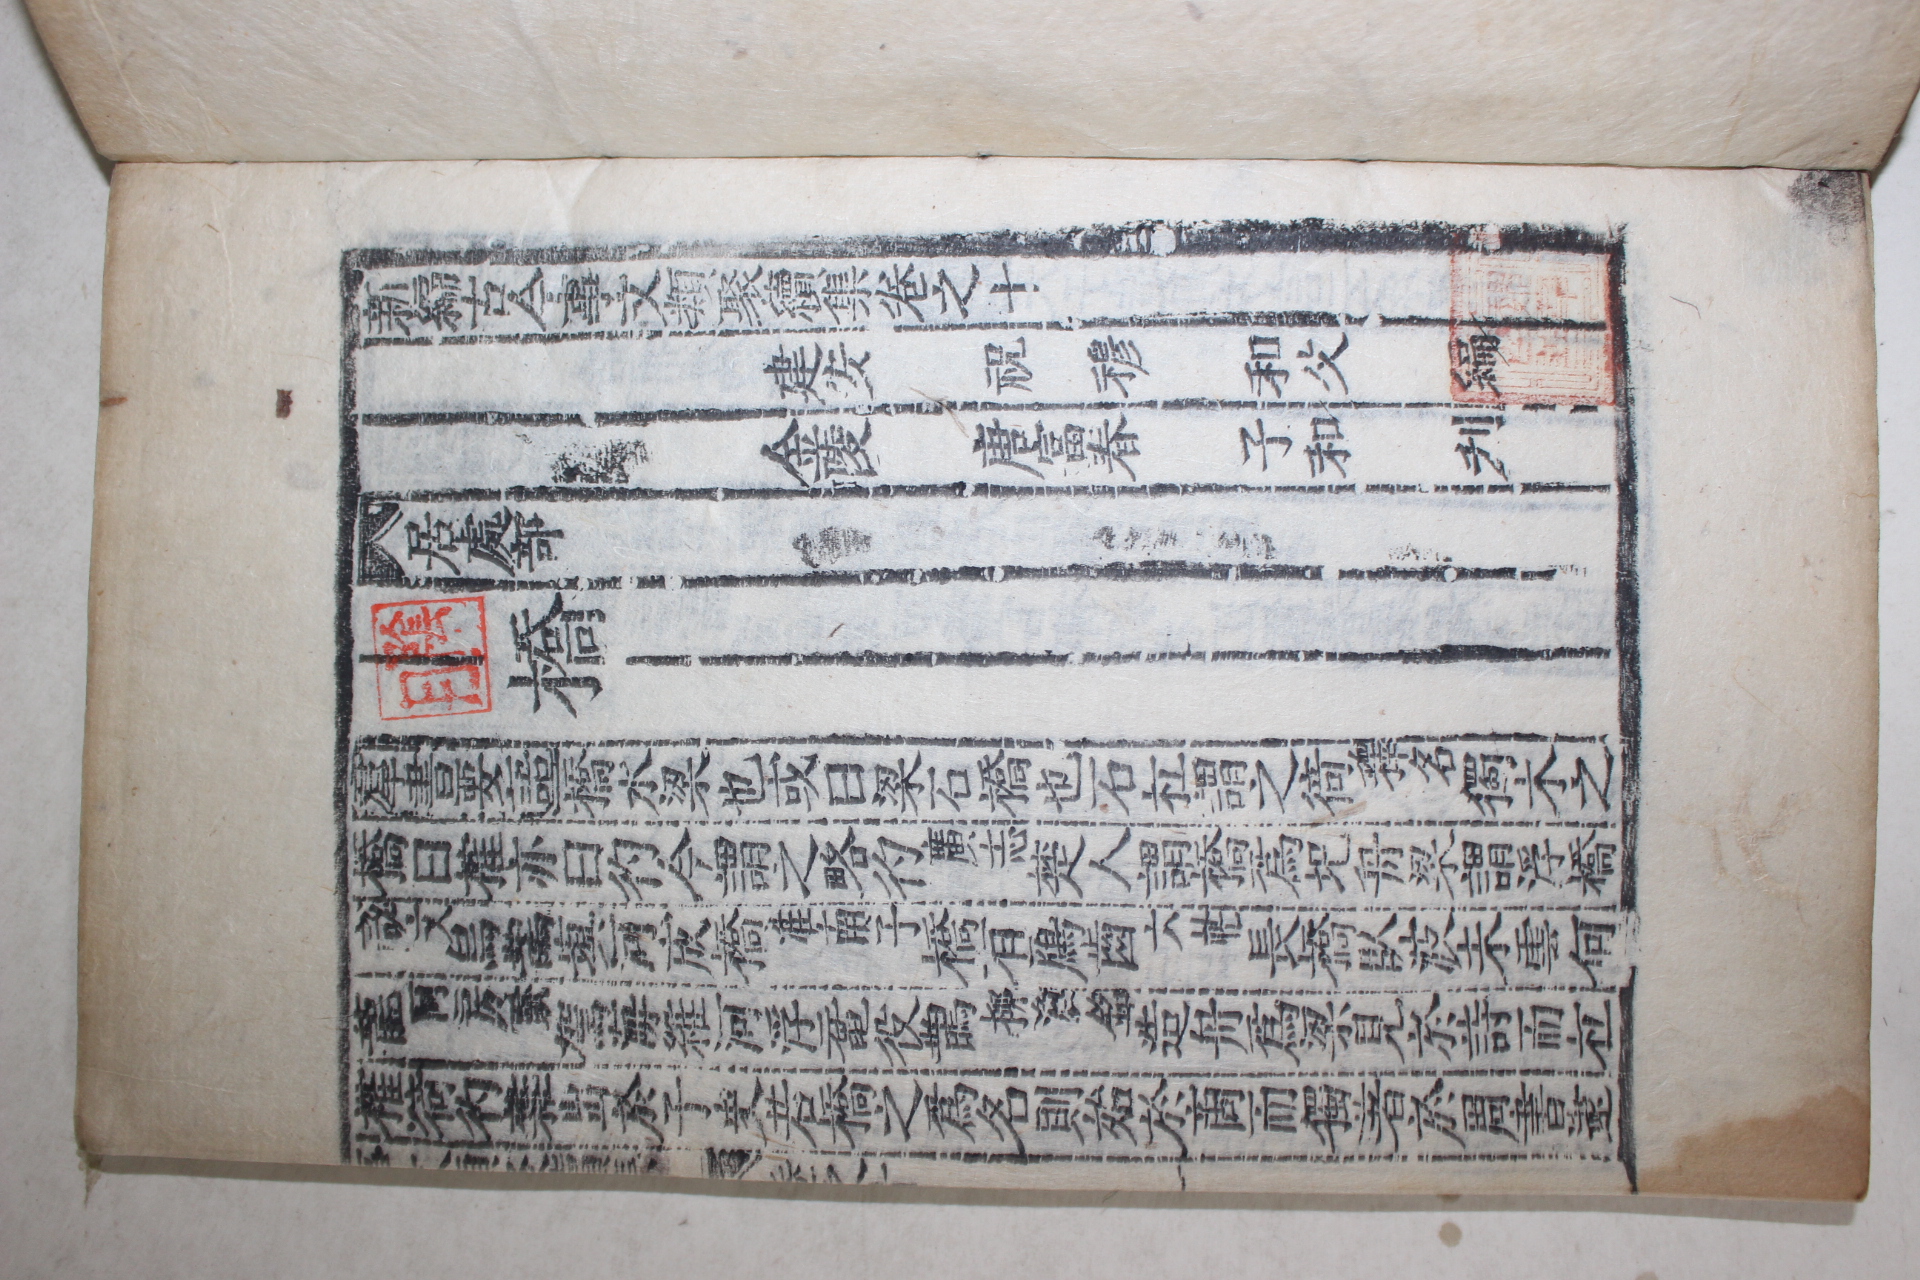 新編古今事文類聚續集卷之十
建安 祝 穆 和父 編
金陵 唐富春 子和 刋
居處部
橋
羣書要語橋水梁也或曰梁石橋也石杠謂之徛釋名獨木之
橋曰榷亦曰彴今謂之略彴廣志楚人謂橋爲圯舟梁謂浮橋
說文烏鵲塡河成橋淮南子橋有鴈齒六帖長橋臥波未雲何
龍阿房賦駕海維河浮黿役鵲柳淊銘造舟爲梁見於詩而杠
榷徛彴雜出於子史若橋之爲名則始於商而獨著於周書遂